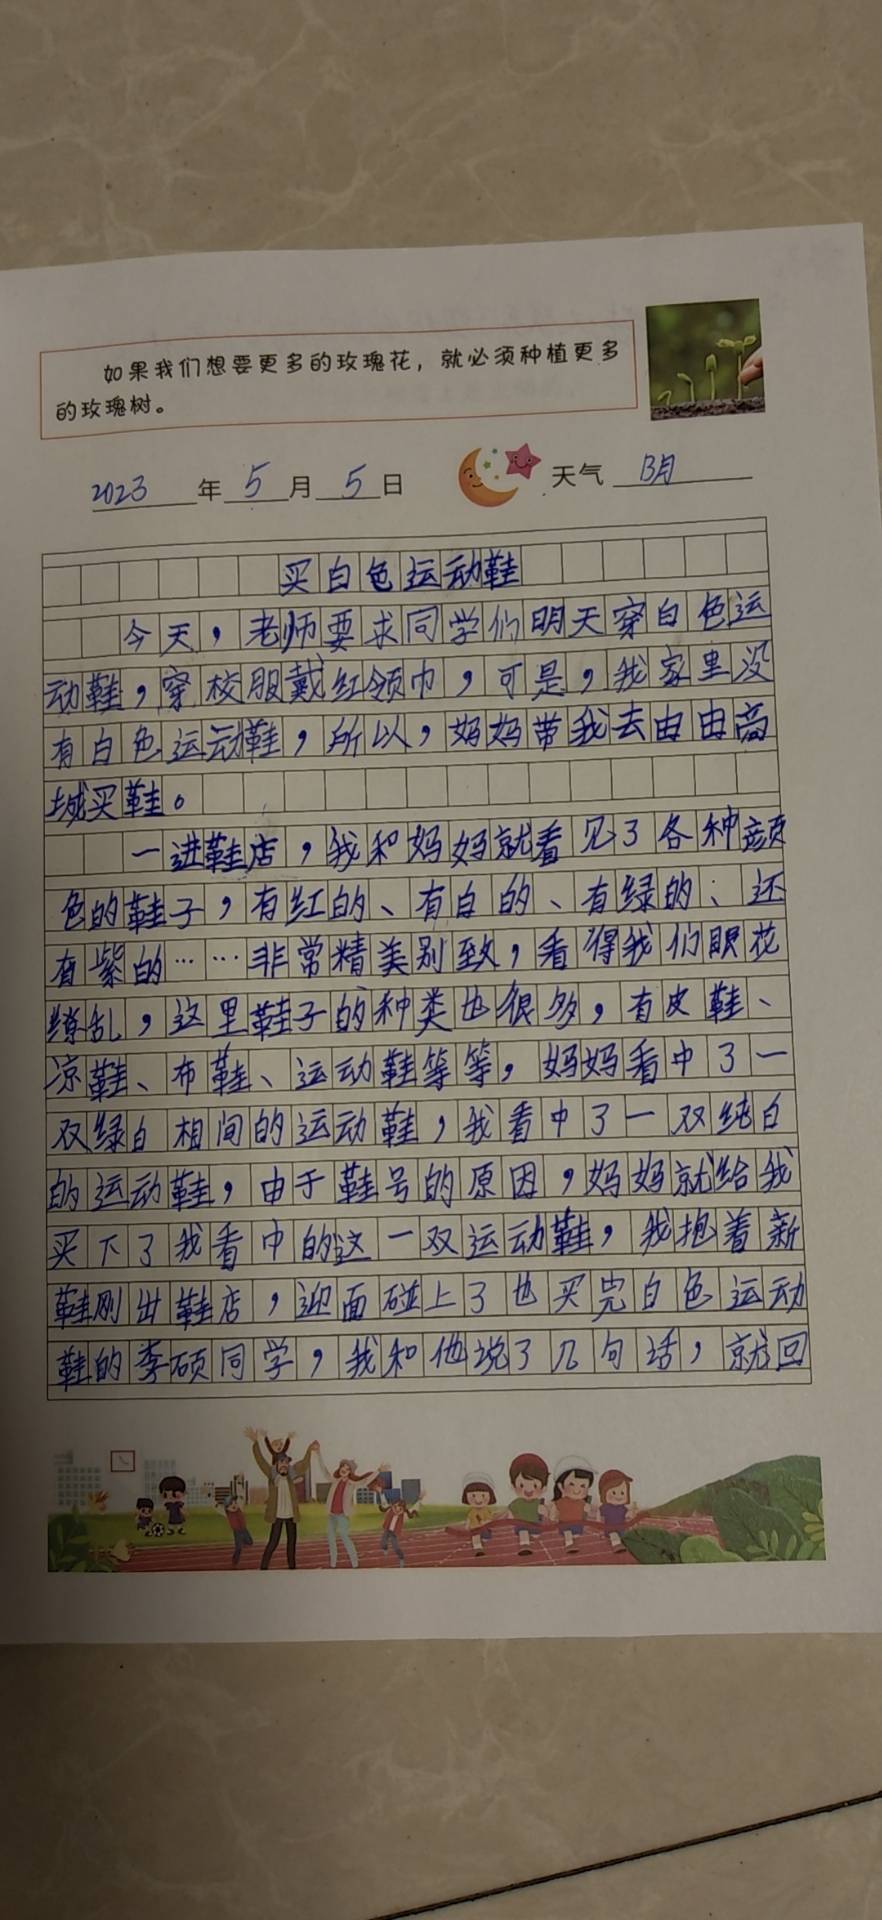 如果我们想要更多的玫瑰花，就必须种植更多
的玫瑰树。
2023年5月5日 天气 阴
买白色运动鞋
今天，老师要求同学们明天穿白色运
动鞋，穿校服戴红领巾，可是，我家里没
有白色运动鞋，所以，妈妈带我去由由商
城买鞋。
一进鞋店，我和妈妈就看见了各种颜
色的鞋子，有红的、有白的、有绿的、还
有紫的……非常精类别致，看得我们眼花
缭乱，这里鞋子的种类也很多，有皮鞋、
凉鞋、布鞋、运动鞋等等，妈妈看中了一
双绿白相间的运动鞋，我看中了一双纯白
的运动鞋，由于鞋号的原因，妈妈就给我
买下了我看中的这一双运动鞋，我抱着新
鞋刚出鞋店，迎面碰上了也买完白色运动
鞋的李硕同学，我和他说了几句话，就回